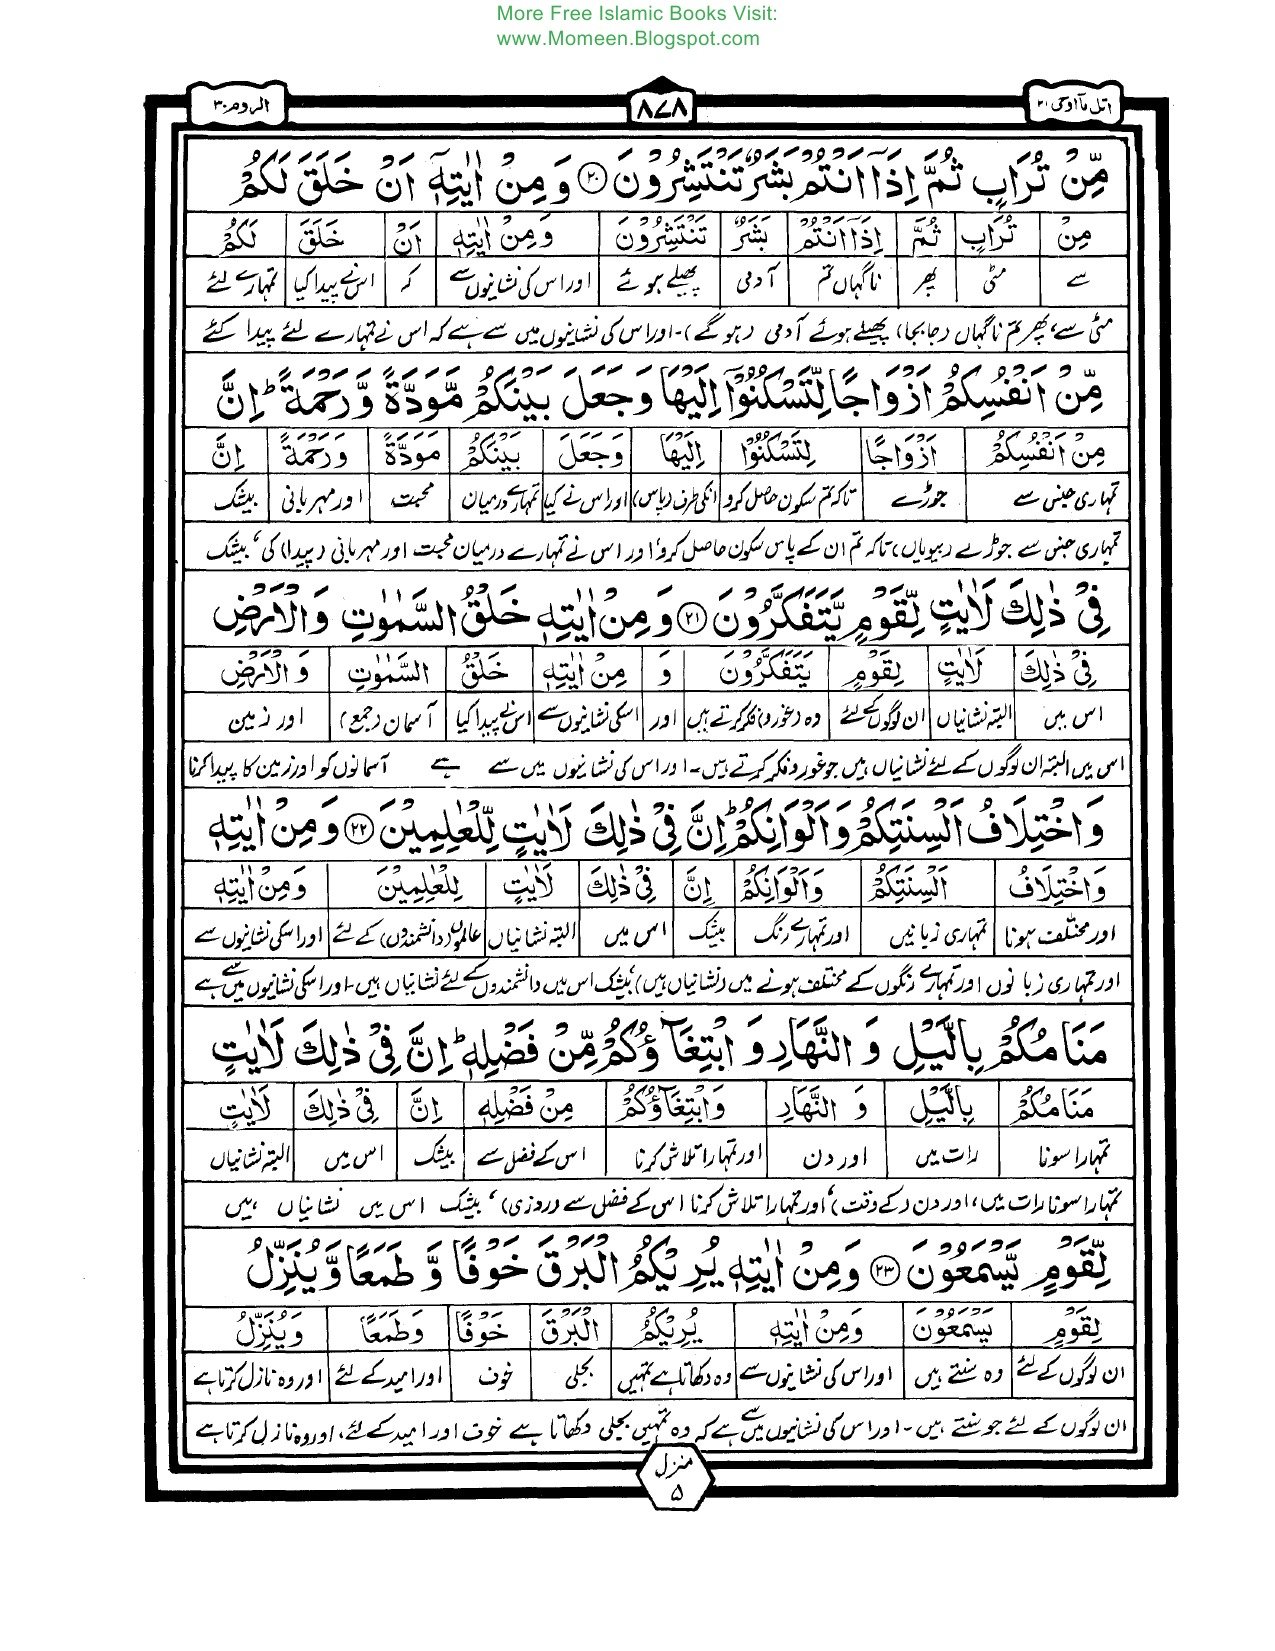 More Free Islamic Books Visit:
www.Momeen.Blogspot.com
اتل مآ اوحی ۲۱
۸۷۸
الروم ۳۰
مِّنْ تُرَابٍ ثُمَّ اِذَآ اَنْتُمْ بَشَرٌ تَنْتَشِرُوْنَ ۝۲۰ وَ مِنْ اٰیٰتِهٖٓ اَنْ خَلَقَ لَكُمْ
مِنْ تُرَابٍ ثُمَّ اِذَآ اَنْتُمْ بَشَرٌ تَنْتَشِرُوْنَ وَمِنْ اٰیٰتِهٖٓ اَنْ خَلَقَ لَكُمْ
سے مٹی پھر ناگہاں تم آدمی پھیلے ہوئے اور اس کی نشانیوں سے کہ اس نے پیدا کیا تمہارے لئے
مٹی سے، پھر تم ناگہاں (جا بجا) پھیلے ہوئے آدمی (ہو گئے)۔ اور اس کی نشانیوں میں سے ہے کہ اس نے تمہارے لئے پیدا کئے
مِّنْ اَنْفُسِكُمْ اَزْوَاجًا لِّتَسْكُنُوْٓا اِلَیْهَا وَجَعَلَ بَیْنَكُمْ مَّوَدَّةً وَّرَحْمَةً ؕ اِنَّ
مِنْ اَنْفُسِكُمْ اَزْوَاجًا لِتَسْكُنُوْٓا اِلَیْهَا وَجَعَلَ بَیْنَكُمْ مَوَدَّةً وَرَحْمَةً اِنَّ
تمہاری جنس سے جوڑے تاکہ تم سکون حاصل کرو انکی طرف (پاس) اور اس نے کیا تمہارے درمیان محبت اور مہربانی بیشک
تمہاری جنس سے جوڑے (بیویاں) تاکہ تم ان کے پاس سکون حاصل کرو، اور اس نے تمہارے درمیان محبت اور مہربانی (پیدا) کی، بیشک
فِیْ ذٰلِكَ لَاٰیٰتٍ لِّقَوْمٍ یَّتَفَكَّرُوْنَ ۝۲۱ وَ مِنْ اٰیٰتِهٖ خَلْقُ السَّمٰوٰتِ وَالْاَرْضِ
فِیْ ذٰلِكَ لَاٰیٰتٍ لِقَوْمٍ یَتَفَكَّرُوْنَ وَ مِنْ اٰیٰتِهٖ خَلْقُ السَّمٰوٰتِ وَ الْاَرْضِ
اس میں البتہ نشانیاں ان لوگوں کے لئے وہ (غور و) فکر کرتے ہیں اور اسکی نشانیوں سے اس نے پیدا کیا آسمان (جمع) اور زمین
اس میں البتہ ان لوگوں کے لئے نشانیاں ہیں جو غور و فکر کرتے ہیں۔ اور اس کی نشانیوں میں سے ہے آسمانوں کو اور زمین کا پیدا کرنا
وَاخْتِلَافُ اَلْسِنَتِكُمْ وَاَلْوَانِكُمْ ؕ اِنَّ فِیْ ذٰلِكَ لَاٰیٰتٍ لِّلْعٰلِمِیْنَ ۝۲۲ وَمِنْ اٰیٰتِهٖ
وَاخْتِلَافُ اَلْسِنَتِكُمْ وَاَلْوَانِكُمْ اِنَّ فِیْ ذٰلِكَ لَاٰیٰتٍ لِلْعٰلِمِیْنَ وَمِنْ اٰیٰتِهٖ
اور مختلف ہونا تمہاری زبانیں اور تمہارے رنگ بیشک اس میں البتہ نشانیاں عالموں (دانشمندوں) کے لئے اور اسکی نشانیوں سے
اور تمہاری زبانوں اور تمہارے رنگوں کے مختلف ہونے میں (نشانیاں ہیں)، بیشک اس میں دانشمندوں کے لئے نشانیاں ہیں۔ اور اسکی نشانیوں میں سے ہے
مَنَامُكُمْ بِالَّیْلِ وَ النَّهَارِ وَ ابْتِغَآؤُكُمْ مِّنْ فَضْلِهٖ ؕ اِنَّ فِیْ ذٰلِكَ لَاٰیٰتٍ
مَنَامُكُمْ بِالَّیْلِ وَ النَّهَارِ وَابْتِغَآؤُكُمْ مِنْ فَضْلِهٖ اِنَّ فِیْ ذٰلِكَ لَاٰیٰتٍ
تمہارا سونا رات میں اور دن اور تمہارا تلاش کرنا اس کے فضل سے بیشک اس میں البتہ نشانیاں
تمہارا سونا رات میں، اور دن (کے وقت)، اور تمہارا تلاش کرنا اس کے فضل سے (روزی)، بیشک اس میں نشانیاں ہیں
لِّقَوْمٍ یَّسْمَعُوْنَ ۝۲۳ وَمِنْ اٰیٰتِهٖ یُرِیْكُمُ الْبَرْقَ خَوْفًا وَّ طَمَعًا وَّیُنَزِّلُ
لِقَوْمٍ یَسْمَعُوْنَ وَمِنْ اٰیٰتِهٖ یُرِیْكُمُ الْبَرْقَ خَوْفًا وَطَمَعًا وَیُنَزِّلُ
ان لوگوں کے لئے وہ سنتے ہیں اور اس کی نشانیوں سے وہ دکھاتا ہے تمہیں بجلی خوف اور امید کے لئے اور وہ نازل کرتا ہے
ان لوگوں کے لئے جو سنتے ہیں۔ اور اس کی نشانیوں میں سے ہے کہ وہ تمہیں بجلی دکھاتا ہے خوف اور امید کے لئے، اور وہ نازل کرتا ہے
منزل
۵